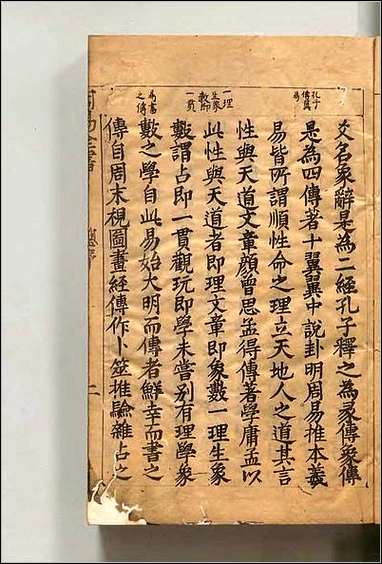 孔子
傳爲
一理
生象
數即
一貫
爲書
之傳
爻名象辭是为二經孔子釋之为彖傳象傳
是为四傳著十翼翼中説卦明周易推本義
易皆所謂順性命之理立天地人之道其言
性與天道文章顔曾思孟得傳著學庸孟以
此性與天道者即理文章即象數一理生象
數謂占即一貫觀玩即學未嘗别有理學象
數之學自此易始大明而傳者鮮幸而書之
傳自周末視圖畫經傳作卜筮推驗雜占之
二